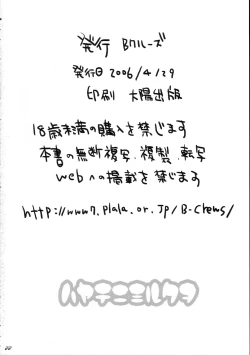 発行 Bクルーズ
発行日 2006/4/29
印刷 大陽出版
18歳未満の購入を禁じます
本書の無断複写、複製、転写
webへの掲載を禁じます
http://www7.plala.or.jp/B-Crews/
ハヤテニミルクヲ